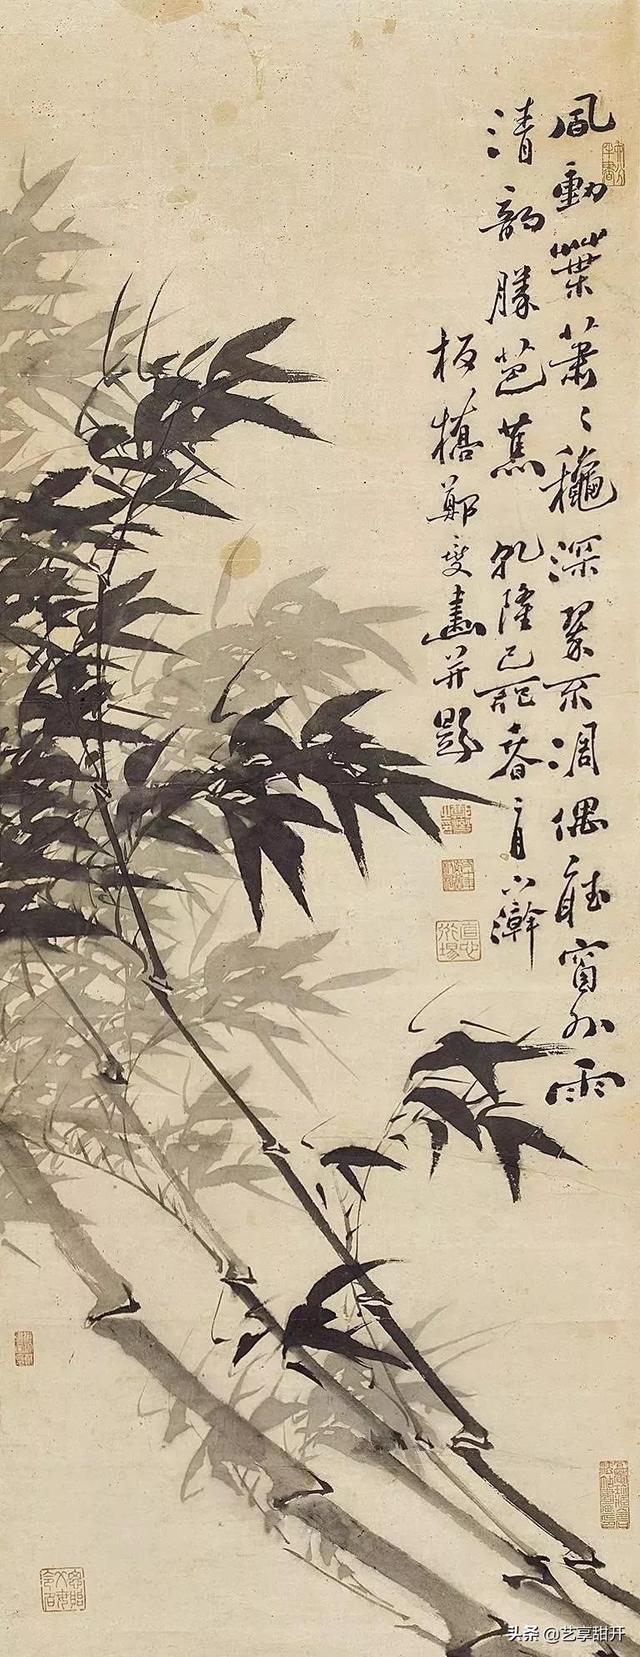 風動葉蕭〻龝深翠不凋偶聽窗外雨
清韻勝芭蕉 乾隆己卯春二月下澣
板橋鄭燮畫并題
头条 @艺享甜开